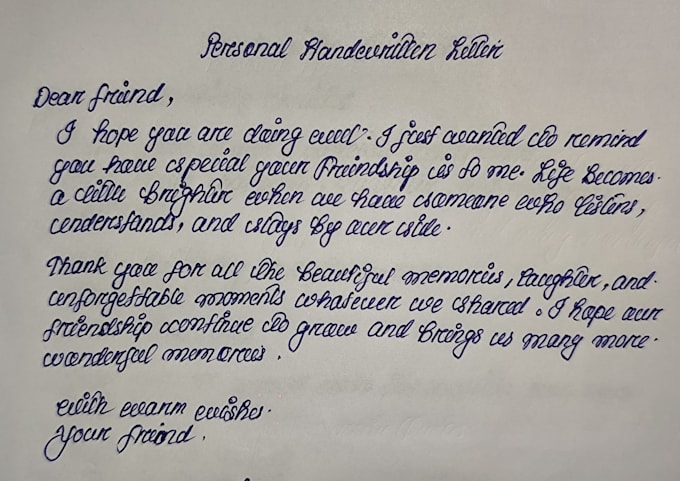 Personal Handwritten Letter
Dear friend,
I hope you are doing well. I just wanted to remind
you how special your friendship is to me. Life becomes
a little brighter when we have someone who listens,
understands, and stays by our side.
Thank you for all the beautiful memories, laughter, and
unforgettable moments whatever we shared. I hope our
friendship continue to grow and brings us many more
wonderful memories.
with warm wishes.
Your friend.